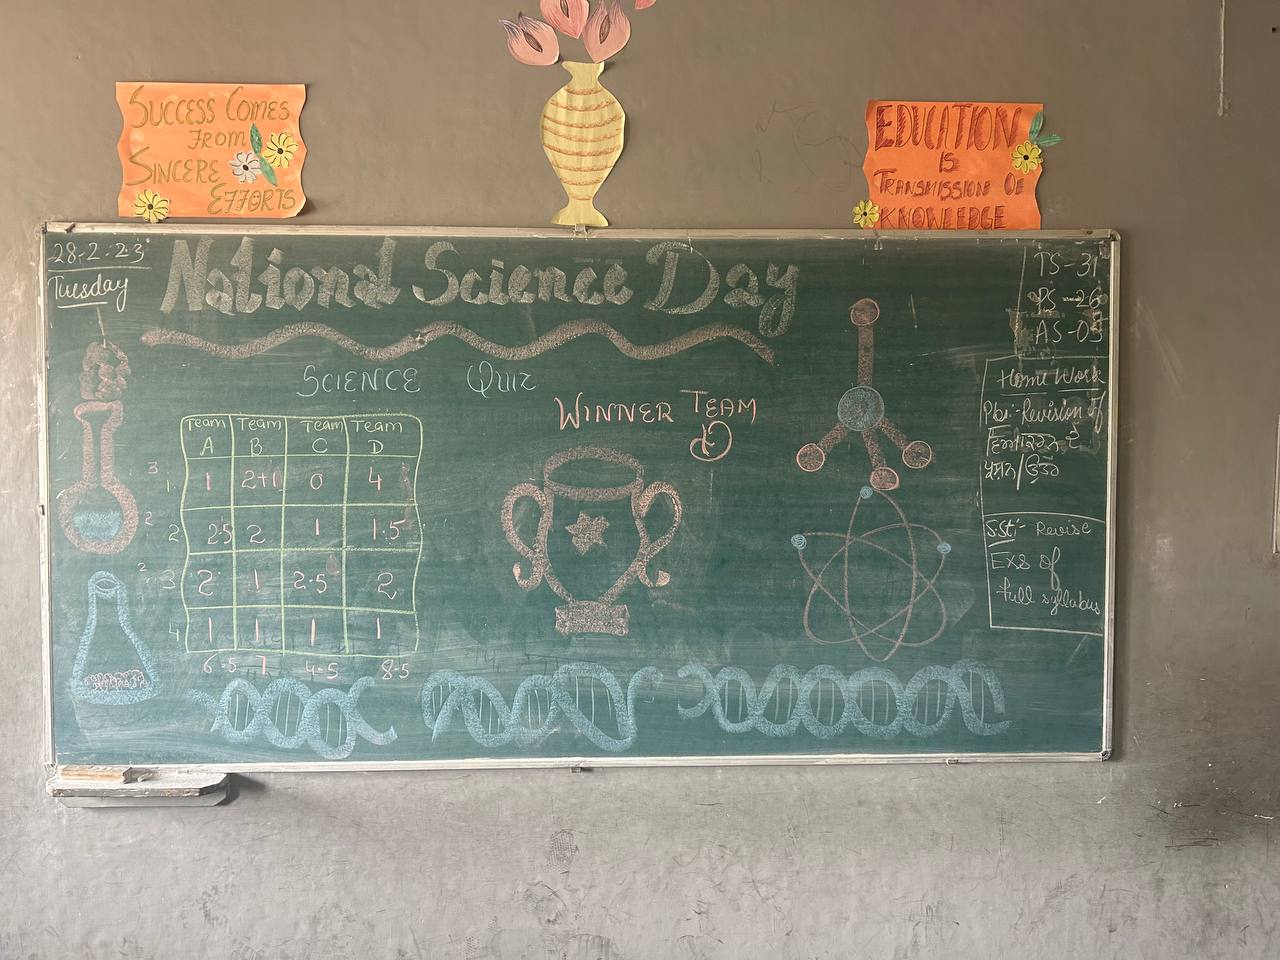 SUCCESS COMES
FROM
SINCERE
EFFORTS
EDUCATION
IS
TRANSMISSION OF
KNOWLEDGE
28-2-23
Tuesday
National Science Day
SCIENCE QUIZ
WINNER TEAM
D
Team A Team B Team C Team D
3 1 1 2+1 0 4
2 2 2.5 2 1 1.5
2 3 2 1 2.5 2
4 1 1 1 1
6.5 7 4.5 8.5
TS-31
PS-26
AS-05
Home Work
Pbi:-Revision of
ਪ੍ਰਸ਼ਨ/ਉੱਤਰ
S.St:- Revise
EXS of
full syllabus